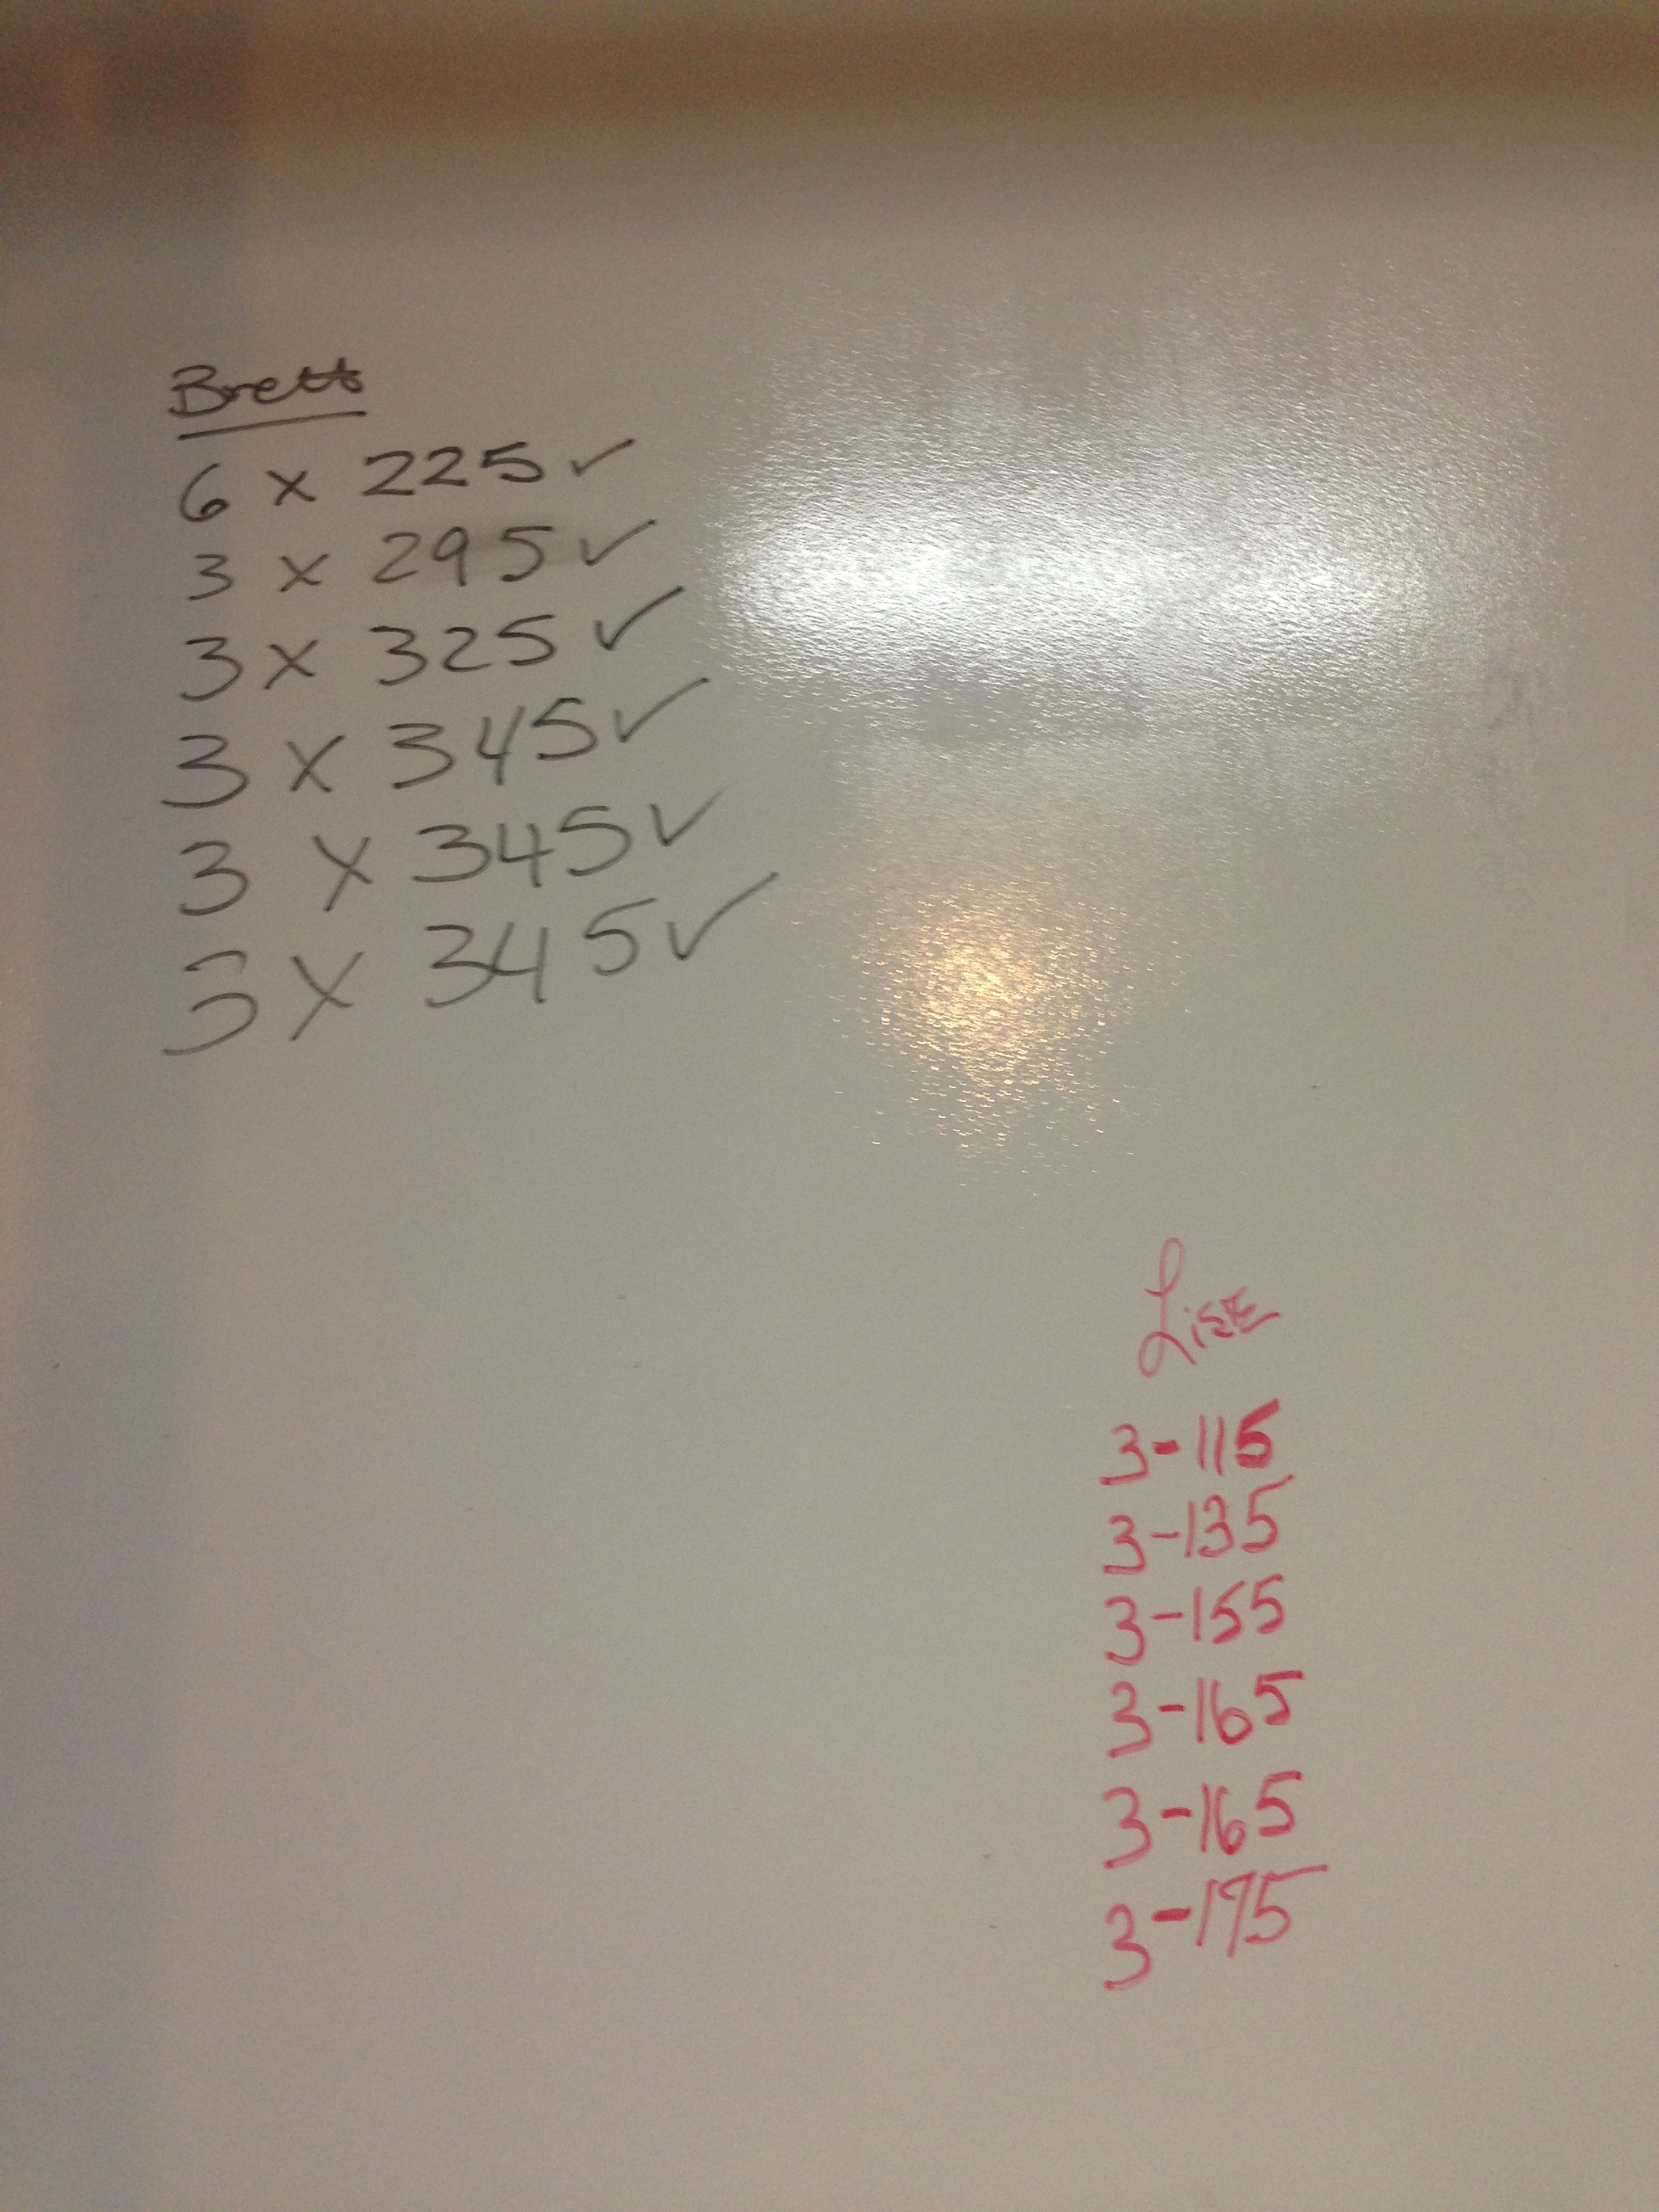 Brett
6 x 225 ✓
3 x 295 ✓
3 x 325 ✓
3 x 345 ✓
3 x 345 ✓
3 x 345 ✓
Lise
3-115
3-135
3-155
3-165
3-165
3-175